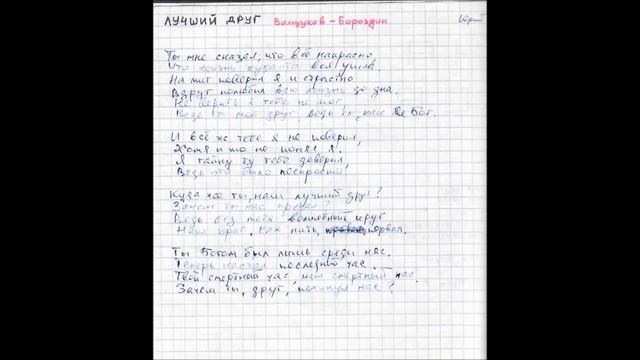 ЛУЧШИЙ ДРУГ Волщуков - Бороздин
Ты мне сказал, что всё напрасно
Что жизнь куда-то вся ушла.
На миг поверил я и страстно
Вдруг полюбил всю жизнь до дна.
Не верить я тебе не мог,
Ведь ты мой друг, ведь ты, как Бог.
И всё ж тебе я не поверил,
Хотя и то не понял я.
Я тайну ту тебе доверил,
Ведь это было неспроста.
Куда же ты, наш лучший друг?
Зачем ты
Ведь без тебя волшебный круг
Наш круг, как нить, порвал.
Ты Богом был лишь среди нас.
Теперь настал последний час
Твой смертный час наш смертный час
Зачем ты, друг, покинул нас?